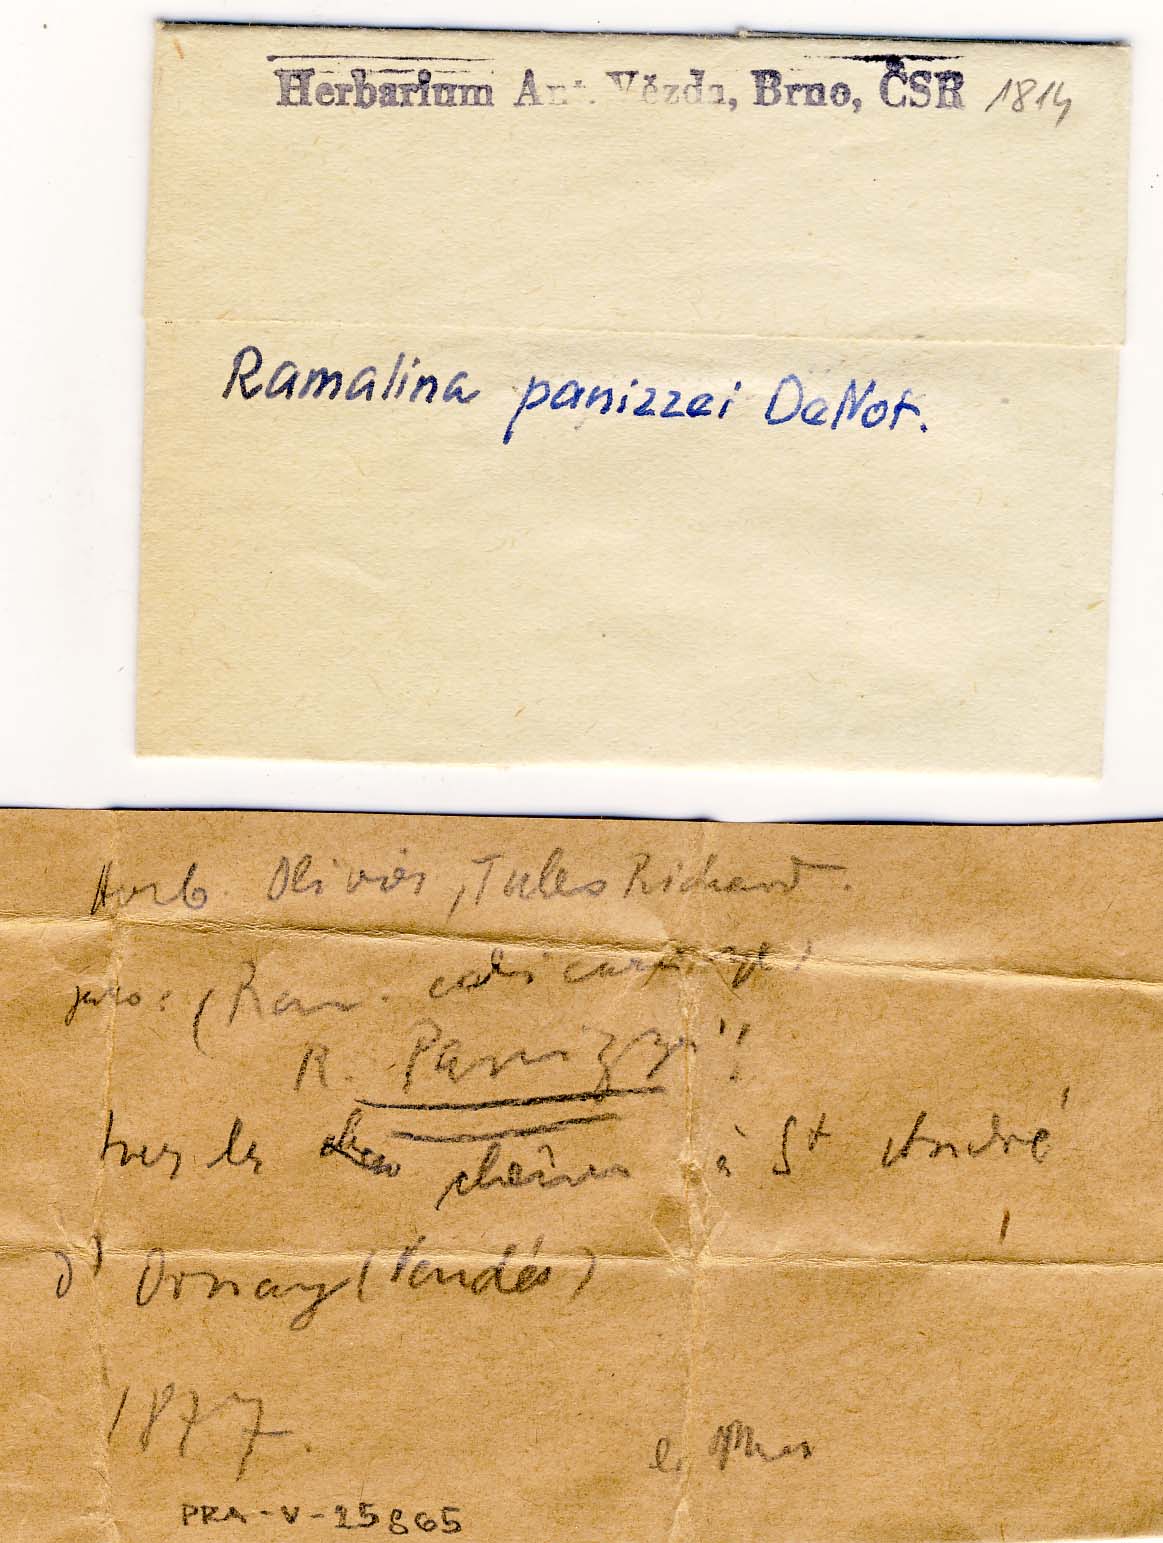 Herbarium Ant. Vězda, Brno, ČSR 1814
Ramalina panizzei DeNot.
Herb. Olivier, Jules Richard.
(Ram.
R. Panizzei!
les chênes à St André
d'Ornay (Vendée)
1877.
PRA-V-25865